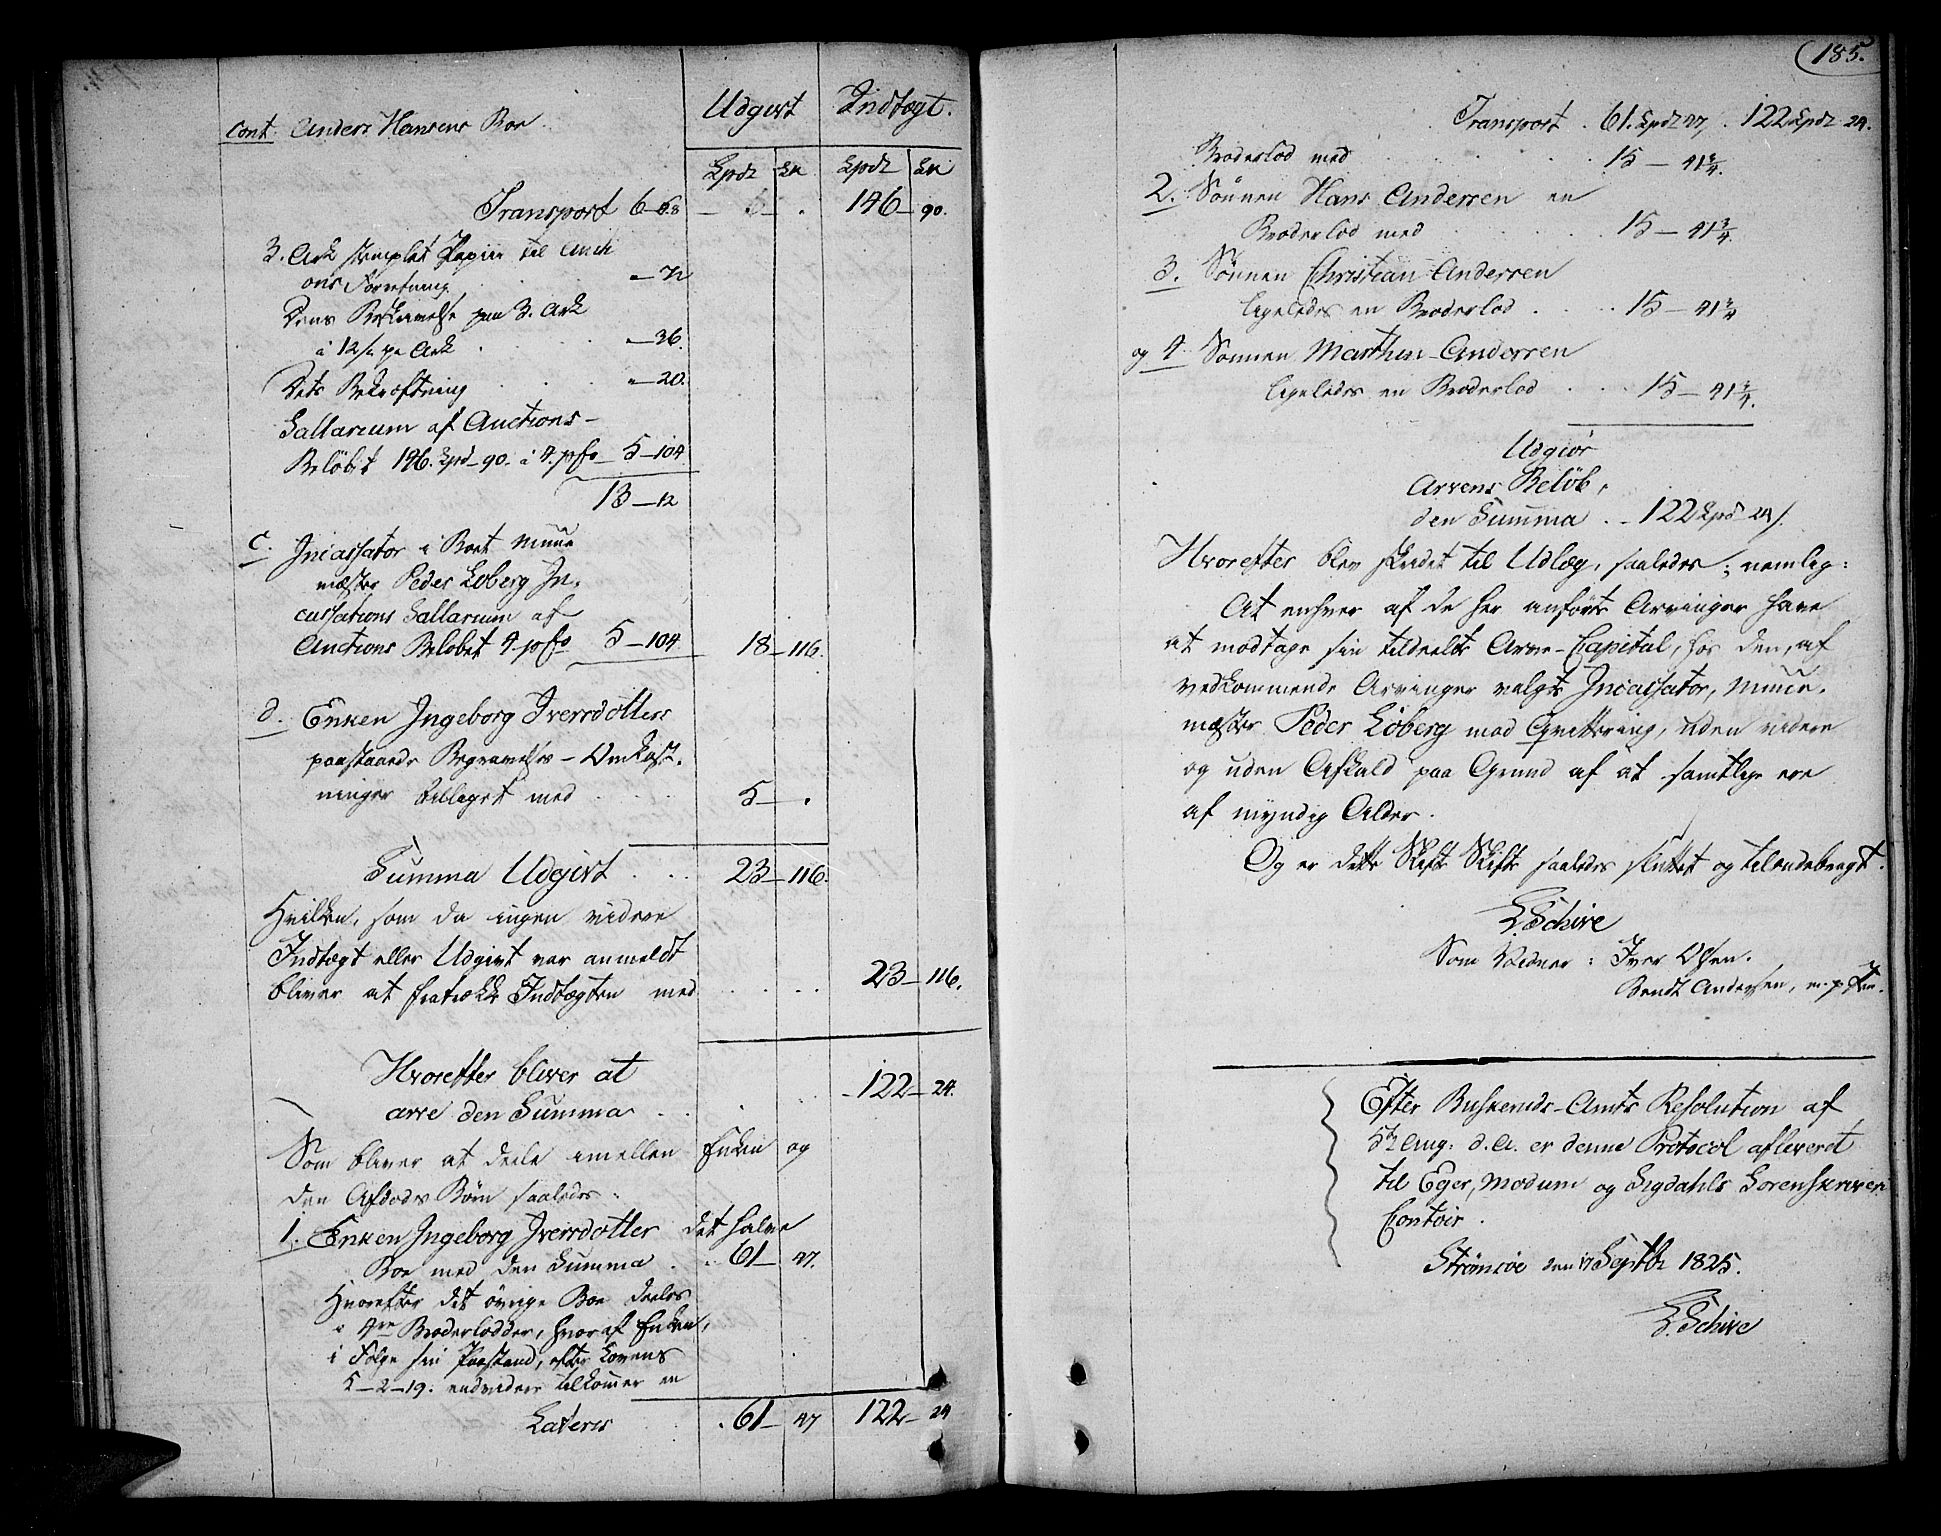 cont. Anders Hansens Boe.
Udgivt Indtægt.
Spdr Sk Spdr Sk
Transport 6-68 - 6- . 146- 90.
3. Ark stemplet Papiir til Aucti
ons Forretning "-72
Dens Beskrivelse paa 3. Ark
à 12/s pr Ark "-36.
Dets Bekræftning "-20.
Sallarium af Auctions-
Beløbet 146. Spd-90. à 4. pCto 5-104
13-12
C. Incassator i Boet Muur
mæster Peder Løberg In-
cassations Sallarium af
Auctions Beløbet 4 pCto 5-104 18-116.
d. Enken Ingeborg Iversdotters
paastaaede Begravelses-Omkost-
ninger billiget med 5- .
Summa Udgivt 23-116.
Hvilken, som da ingen videre
Indtægt eller Udgivt var anmeldt
bliver at fratrække Indtægten med 23-116.
Hvorefter bliver at
arve den Summa 122-24.
Som bliver at deele imellem Enken og
den Afdødes Børn saaledes:
1. Enken Ingeborg Iversdotter det halve
Boe med den Summa 61- 47.
Hvorefter det øvrige Boe deeles
i 4re Broderlodder, hvoraf Enken,
i Følge sin Paastand, efter Lovens
5-2-19. endvidere tilkommer en
Lateris 61- 47 122- 24
185.
Transport . 61. Spdr 47/ . 122 Spdr 24.
Broderlod med 15- 41 3/4.
2. Sønnen Hans Andersen en
Broderlod med 15- 41 3/4.
3. Sønnen Christian Andersen
ligeledes en Broderlod 15- 41 3/4
og 4. Sønnen Marthin Andersen
ligeledes en Broderlod 15- 41 3/4.
Udgiør
Arvens Beløb,
den Summa .. 122 Spd 24/.
Hvorefter blev skredet til Udlæg, saaledes; nemlig:
At enhver af de her anførte Arvinger have
at modtage sin tildeelte Arve-Capital, hos den, af
vedkommende Arvinger valgte Incassator, Muur-
mæster Peder Løberg mod Qvittering, uden videre
og uden Afkald paa Grund af at samtlige ere
af myndig Alder.
Og er dette Skifte Skifte saaledes sluttet og tilendebragt.
Schive
Som Vidner: Iver Olsen.
Bendt Andersen, m. p. Pen.
Efter Buskeruds-Amts Resolution af
5te Aug: d. A. er denne Protocol afleveret
til Eger, Modum og Sigdahls Sorenskriver
Contoir.
Strømsøe den 17 Septbr 1825.
Schive